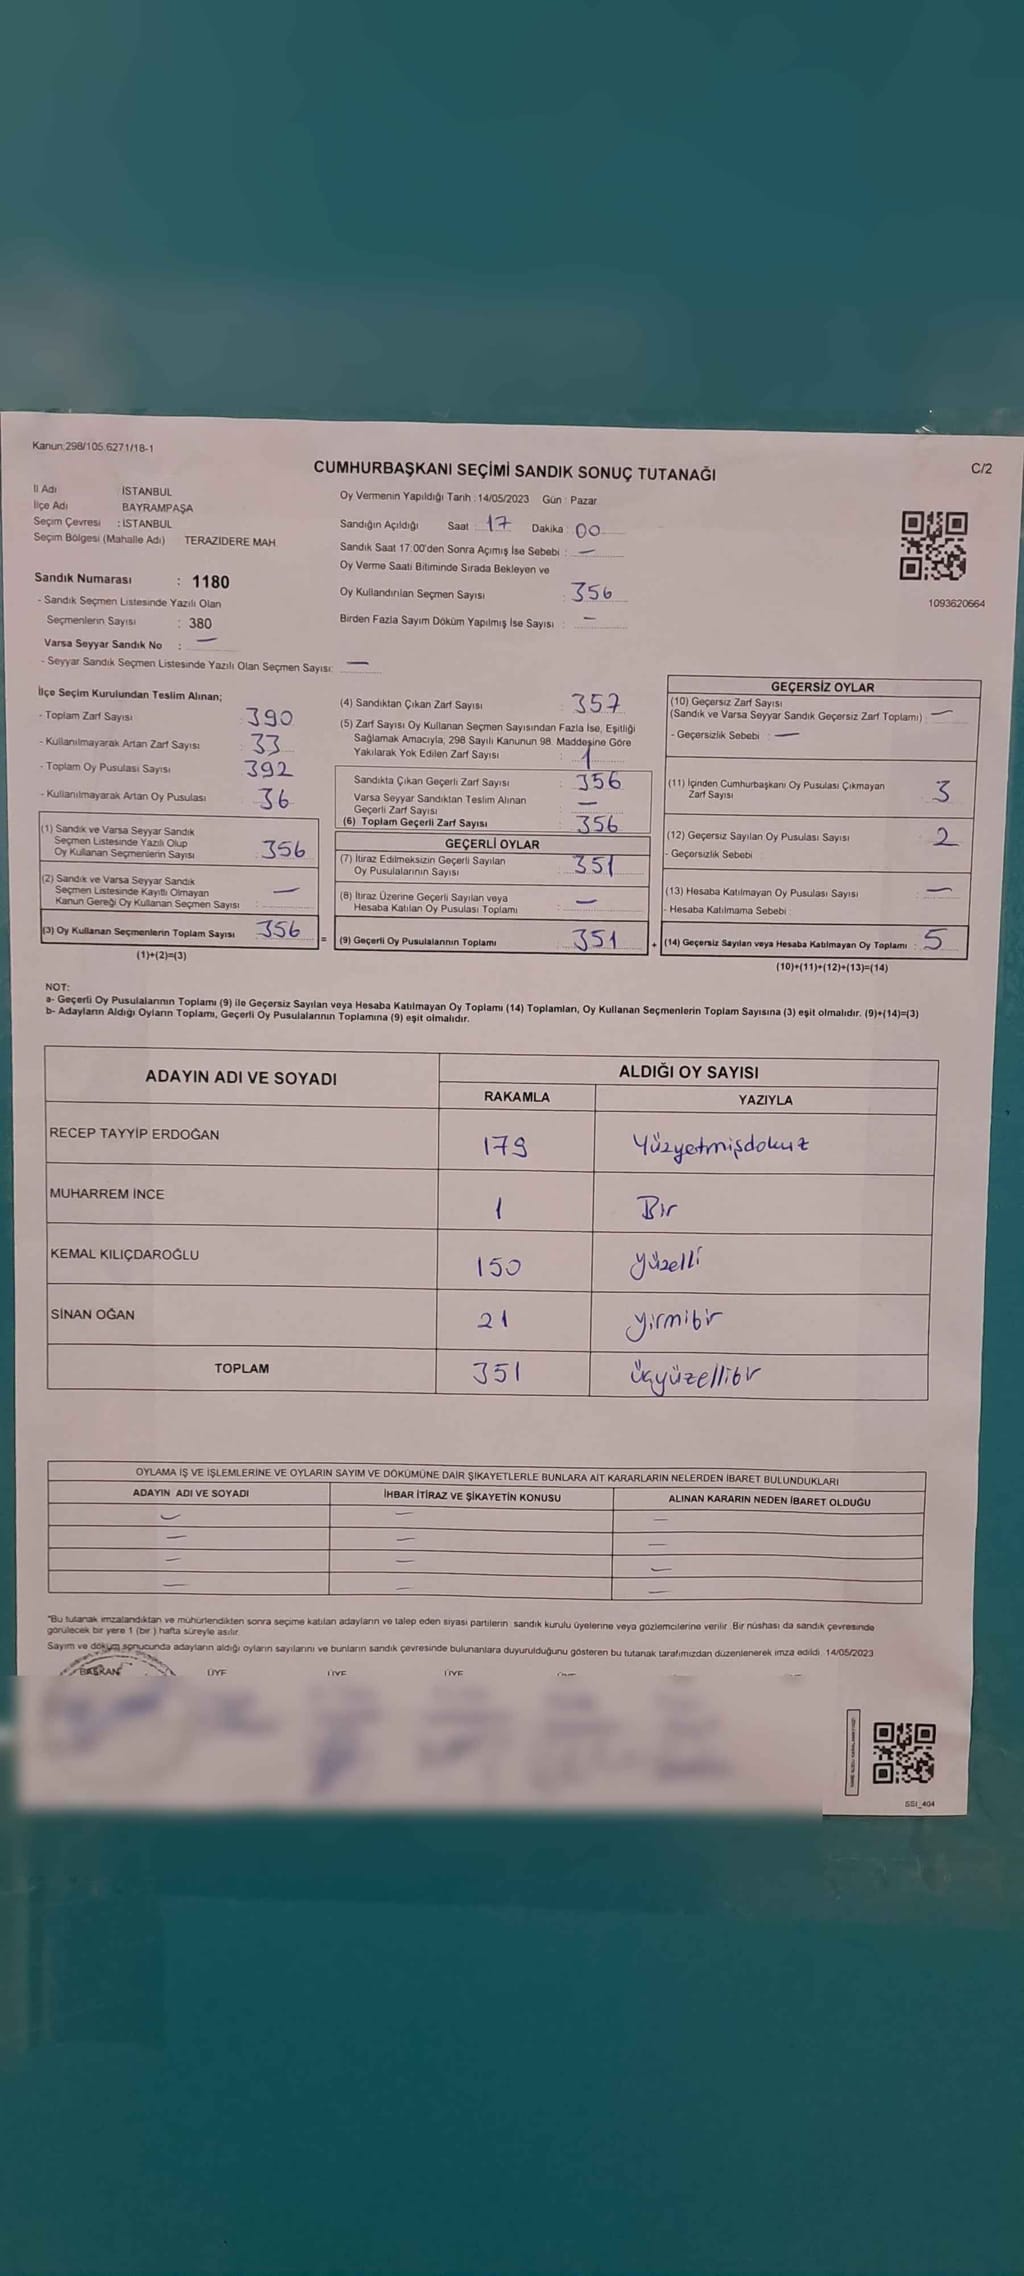 Kanun:298/105.6271/18-1
C/2
CUMHURBAŞKANI SEÇİMİ SANDIK SONUÇ TUTANAĞI
İl Adı : İSTANBUL
İlçe Adı : BAYRAMPAŞA
Seçim Çevresi : İSTANBUL
Seçim Bölgesi (Mahalle Adı) TERAZİDERE MAH.
Sandık Numarası : 1180
- Sandık Seçmen Listesinde Yazılı Olan
Seçmenlerin Sayısı : 380
Varsa Seyyar Sandık No : —
- Seyyar Sandık Seçmen Listesinde Yazılı Olan Seçmen Sayısı: —
Oy Vermenin Yapıldığı Tarih : 14/05/2023 Gün : Pazar
Sandığın Açıldığı Saat : 17 Dakika : 00
Sandık Saat 17:00'den Sonra Açımış İse Sebebi : —
Oy Verme Saati Bitiminde Sırada Bekleyen ve
Oy Kullandırılan Seçmen Sayısı : 356
Birden Fazla Sayım Döküm Yapılmış İse Sayısı : —
1093620664
İlçe Seçim Kurulundan Teslim Alınan;
- Toplam Zarf Sayısı 390
- Kullanılmayarak Artan Zarf Sayısı 33
- Toplam Oy Pusulası Sayısı 392
- Kullanılmayarak Artan Oy Pusulası 36
(1) Sandık ve Varsa Seyyar Sandık
Seçmen Listesinde Yazılı Olup
Oy Kullanan Seçmenlerin Sayısı 356
(2) Sandık ve Varsa Seyyar Sandık
Seçmen Listesinde Kayıtlı Olmayan
Kanun Gereği Oy Kullanan Seçmen Sayısı : —
(3) Oy Kullanan Seçmenlerin Toplam Sayısı 356
(1)+(2)=(3)
=
(4) Sandıktan Çıkan Zarf Sayısı : 357
(5) Zarf Sayısı Oy Kullanan Seçmen Sayısından Fazla İse, Eşitliği
Sağlamak Amacıyla, 298 Sayılı Kanunun 98. Maddesine Göre
Yakılarak Yok Edilen Zarf Sayısı : 1
Sandıkta Çıkan Geçerli Zarf Sayısı : 356
Varsa Seyyar Sandıktan Teslim Alınan
Geçerli Zarf Sayısı : —
(6) Toplam Geçerli Zarf Sayısı 356
GEÇERLİ OYLAR
(7) İtiraz Edilmeksizin Geçerli Sayılan
Oy Pusulalarının Sayısı : 351
(8) İtiraz Üzerine Geçerli Sayılan veya
Hesaba Katılan Oy Pusulası Toplamı : —
(9) Geçerli Oy Pusulalarının Toplamı : 351
+
GEÇERSİZ OYLAR
(10) Geçersiz Zarf Sayısı
(Sandık ve Varsa Seyyar Sandık Geçersiz Zarf Toplamı) : —
- Geçersizlik Sebebi : —
(11) İçinden Cumhurbaşkanı Oy Pusulası Çıkmayan
Zarf Sayısı : 3
(12) Geçersiz Sayılan Oy Pusulası Sayısı : 2
- Geçersizlik Sebebi :
(13) Hesaba Katılmayan Oy Pusulası Sayısı : —
- Hesaba Katılmama Sebebi :
(14) Geçersiz Sayılan veya Hesaba Katılmayan Oy Toplamı : 5
(10)+(11)+(12)+(13)=(14)
NOT:
a- Geçerli Oy Pusulalarının Toplamı (9) ile Geçersiz Sayılan veya Hesaba Katılmayan Oy Toplamı (14) Toplamları, Oy Kullanan Seçmenlerin Toplam Sayısına (3) eşit olmalıdır. (9)+(14)=(3)
b- Adayların Aldığı Oyların Toplamı, Geçerli Oy Pusulalarının Toplamına (9) eşit olmalıdır.
ADAYIN ADI VE SOYADI ALDIĞI OY SAYISI
RAKAMLA YAZIYLA
RECEP TAYYİP ERDOĞAN 179 Yüzyetmişdokuz
MUHARREM İNCE 1 Bir
KEMAL KILIÇDAROĞLU 150 yüzelli
SİNAN OĞAN 21 yirmibir
TOPLAM 351 üçyüzellibir
OYLAMA İŞ VE İŞLEMLERİNE VE OYLARIN SAYIM VE DÖKÜMÜNE DAİR ŞİKAYETLERLE BUNLARA AİT KARARLARIN NELERDEN İBARET BULUNDUKLARI
ADAYIN ADI VE SOYADI İHBAR İTİRAZ VE ŞİKAYETİN KONUSU ALINAN KARARIN NEDEN İBARET OLDUĞU
— — —
— — —
— — —
— — —
"Bu tutanak imzalandıktan ve mühürlendikten sonra seçime katılan adayların ve talep eden siyasi partilerin sandık kurulu üyelerine veya gözlemcilerine verilir. Bir nüshası da sandık çevresinde
görülecek bir yere 1 (bir ) hafta süreyle asılır.
Sayım ve döküm sonucunda adayların aldığı oyların sayılarını ve bunların sandık çevresinde bulunanlara duyurulduğunu gösteren bu tutanak tarafımızdan düzenlenerek imza edildi. 14/05/2023
BAŞKAN ÜYE ÜYE ÜYE
SSI_404